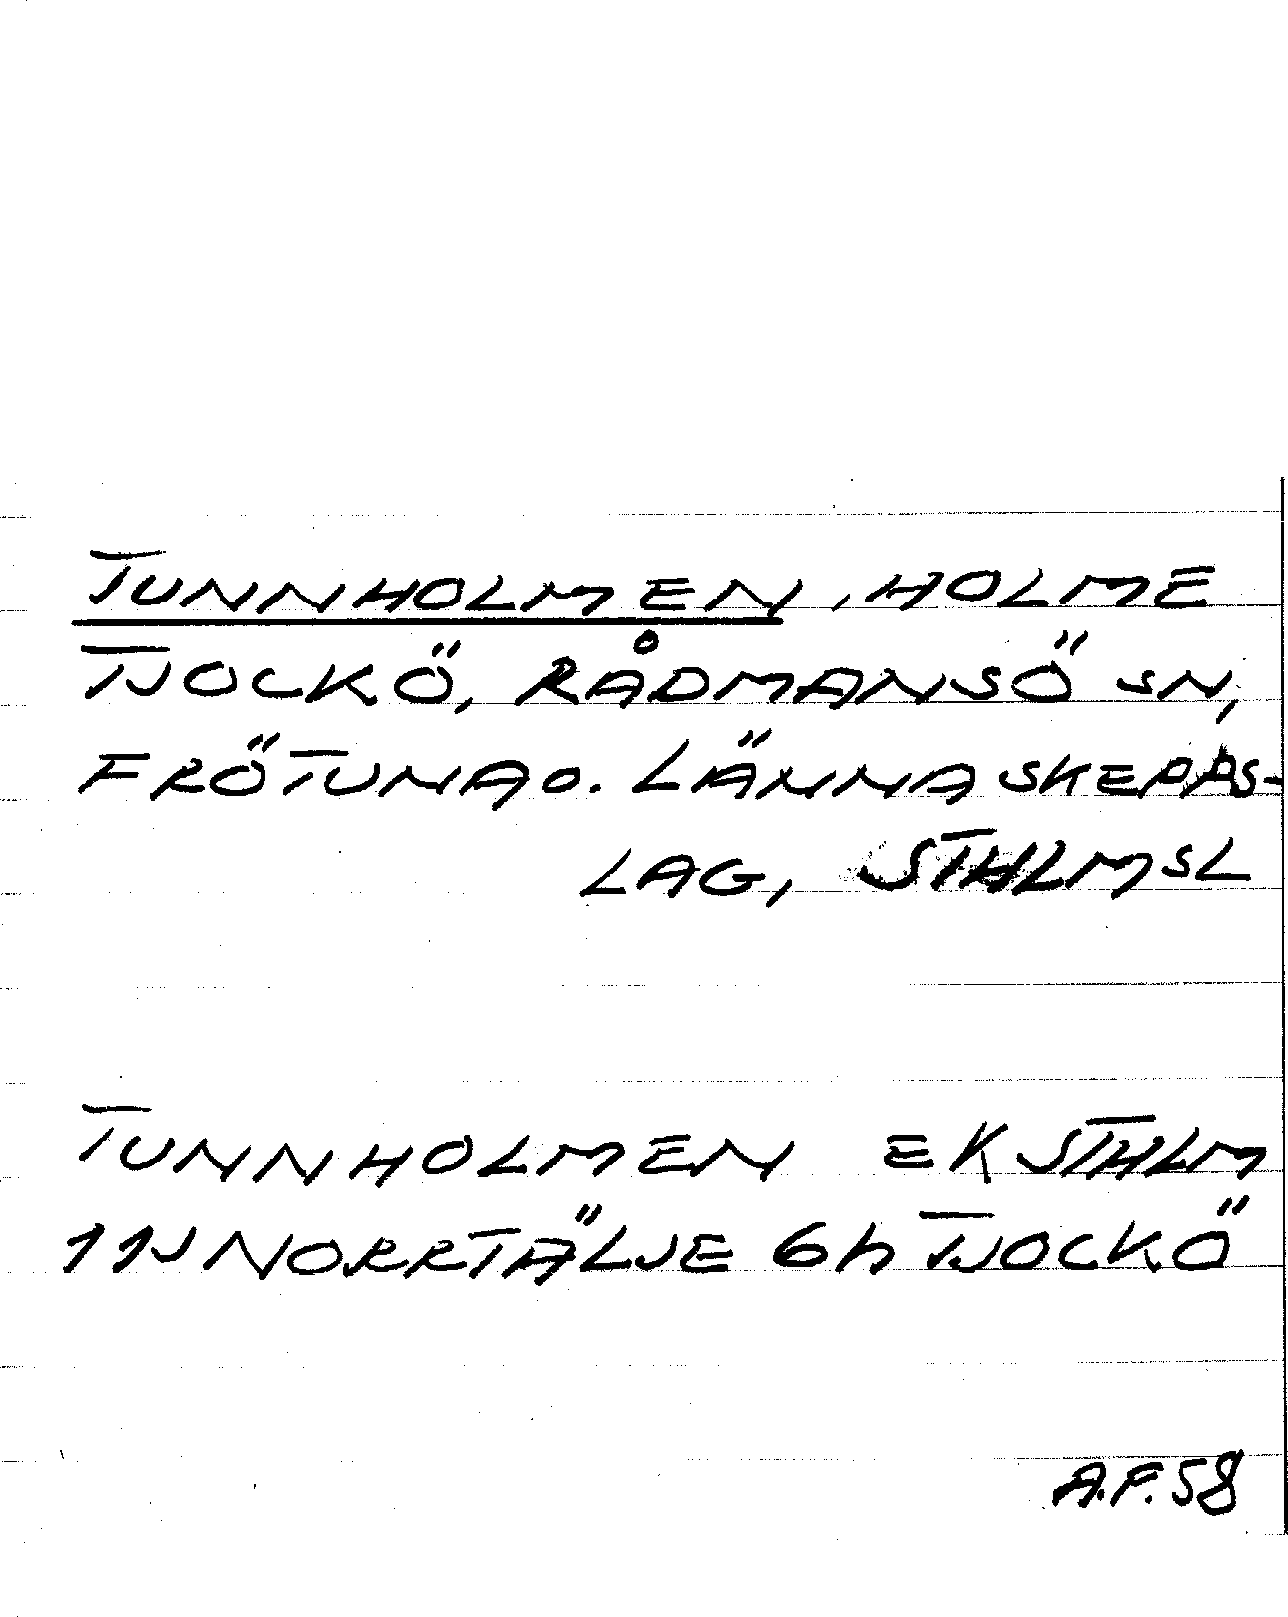 TUNNHOLMEN, HOLME
TJOCKÖ, RÅDMANSÖ SN,
FRÖTUNA O. LÄNNA SKEPPS-
LAG, STHLMSL
TUNNHOLMEN EK STHLM
11J NORRTÄLJE 6h TJOCKÖ
A.F.58